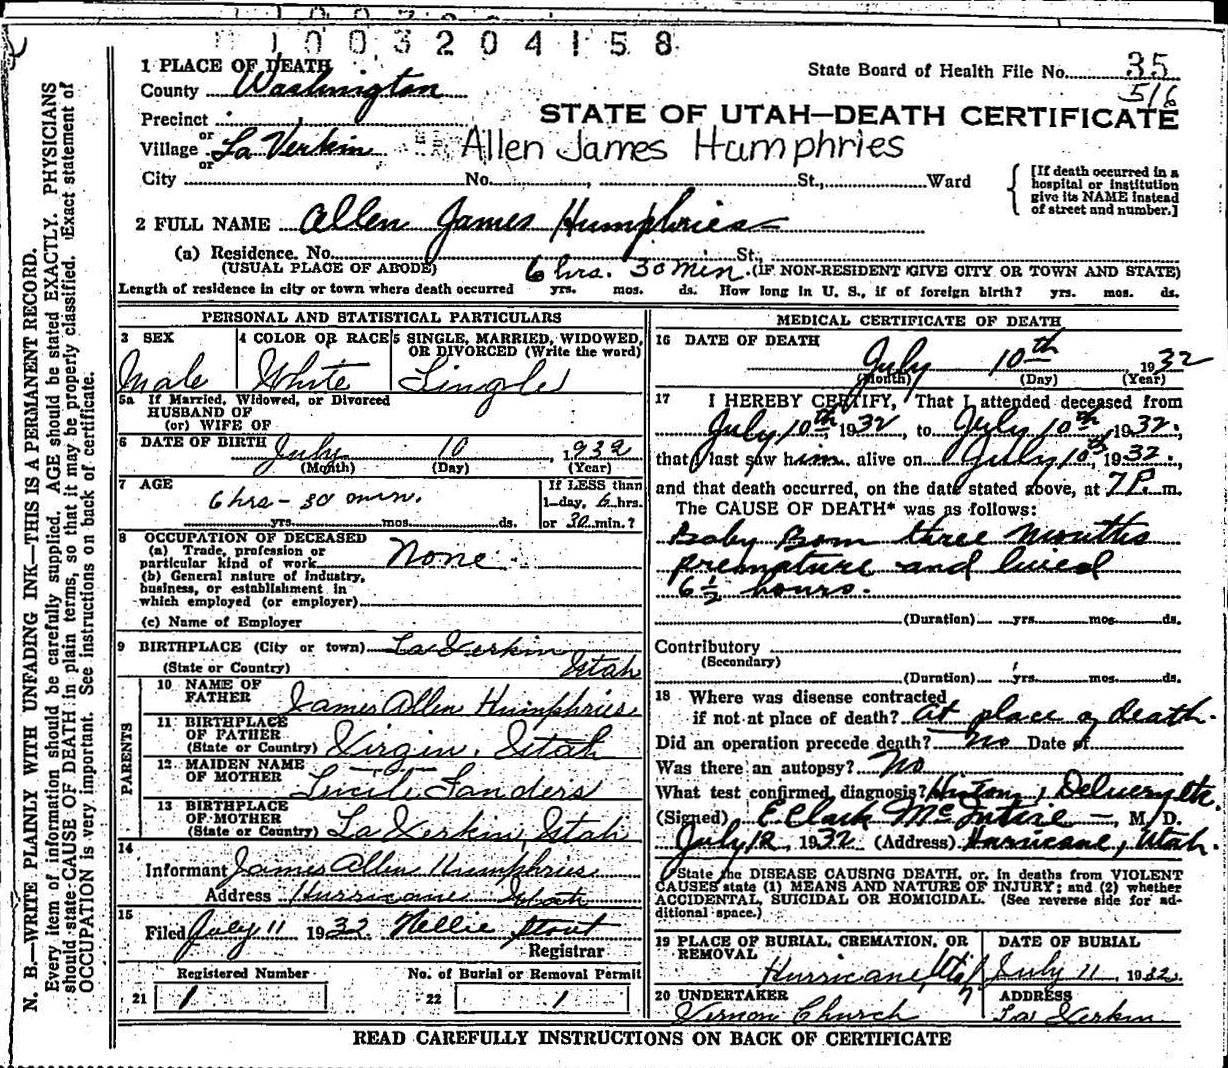 1003204158
State Board of Health File No. 35
516
1 PLACE OF DEATH
County Washington
STATE OF UTAH—DEATH CERTIFICATE
Precinct
or
Village La Verkin Allen James Humphries
or
City No. St., Ward
[If death occurred in a hospital or institution give its NAME instead of street and number.]
2 FULL NAME Allen James Humphries
(a) Residence. No. St.,
(USUAL PLACE OF ABODE) 6 hrs. 30 min. (IF NON-RESIDENT GIVE CITY OR TOWN AND STATE)
Length of residence in city or town where death occurred yrs. mos. ds. How long in U. S., if of foreign birth? yrs. mos. ds.
PERSONAL AND STATISTICAL PARTICULARS
3 SEX 4 COLOR OR RACE 5 SINGLE, MARRIED, WIDOWED, OR DIVORCED (Write the word)
Male White Single
5a If Married, Widowed, or Divorced
HUSBAND OF
(or) WIFE OF
6 DATE OF BIRTH July 10, 1932
(Month) (Day) (Year)
7 AGE 6 hrs - 30 min.
yrs. mos. ds.
If LESS than
1-day, 6 hrs.
or 30 min.?
8 OCCUPATION OF DECEASED
(a) Trade, profession or
particular kind of work None
(b) General nature of industry,
business, or establishment in
which employed (or employer)
(c) Name of Employer
9 BIRTHPLACE (City or town) La Verkin
(State or Country) Utah
PARENTS
10 NAME OF
FATHER James Allen Humphries
11 BIRTHPLACE
OF FATHER
(State or Country) Virgin, Utah
12 MAIDEN NAME
OF MOTHER Lucile Sanders
13 BIRTHPLACE
OF MOTHER
(State or Country) La Verkin, Utah
14
Informant James Allen Humphries
Address Hurricane Utah
15
Filed July 11 1932 Nellie Stout
Registrar
Registered Number No. of Burial or Removal Permit
21 1 22 1
MEDICAL CERTIFICATE OF DEATH
16 DATE OF DEATH
July 10th 1932
(Month) (Day) (Year)
17 I HEREBY CERTIFY, That I attended deceased from
July 10th, 1932, to July 10th, 1932,
that I last saw him alive on July 10th, 1932,
and that death occurred, on the date stated above, at 7 P. m.
The CAUSE OF DEATH* was as follows:
Baby Born three months
premature and lived
6 1/2 hours.
(Duration) yrs. mos. ds.
Contributory
(Secondary)
(Duration) yrs. mos. ds.
18 Where was disease contracted
if not at place of death? At place of death.
Did an operation precede death? No Date of
Was there an autopsy? No
What test confirmed diagnosis? History, Delivery etc.
(Signed) E Clark McIntire, M. D.
July 12, 1932 (Address) Hurricane, Utah.
State the DISEASE CAUSING DEATH, or, in deaths from VIOLENT
CAUSES state (1) MEANS AND NATURE OF INJURY; and (2) whether
ACCIDENTAL, SUICIDAL OR HOMICIDAL. (See reverse side for ad-
ditional space.)
19 PLACE OF BURIAL, CREMATION, OR
REMOVAL
Hurricane, Utah
DATE OF BURIAL
July 11 1932
20 UNDERTAKER
Vernon Church
ADDRESS
La Verkin
READ CAREFULLY INSTRUCTIONS ON BACK OF CERTIFICATE
N. B.—WRITE PLAINLY WITH UNFADING INK—THIS IS A PERMANENT RECORD.
Every item of information should be carefully supplied. AGE should be stated EXACTLY. PHYSICIANS
should state CAUSE OF DEATH in plain terms, so that it may be properly classified. Exact statement of
OCCUPATION is very important. See instructions on back of certificate.